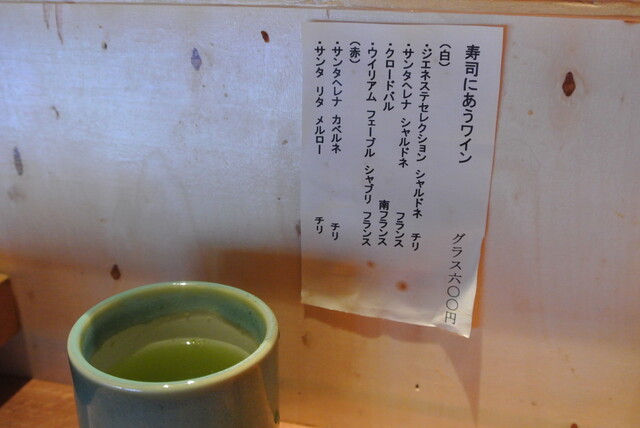 寿司にあうワイン
グラス六〇〇円
(白)
・ジエネステセレクション シャルドネ チリ
・サンタヘレナ シャルドネ フランス
・クロードバル 南フランス
・ウイリアム フェーブル シャブリ フランス
(赤)
・サンタヘレナ カベルネ チリ
・サンタ リタ メルロー チリ